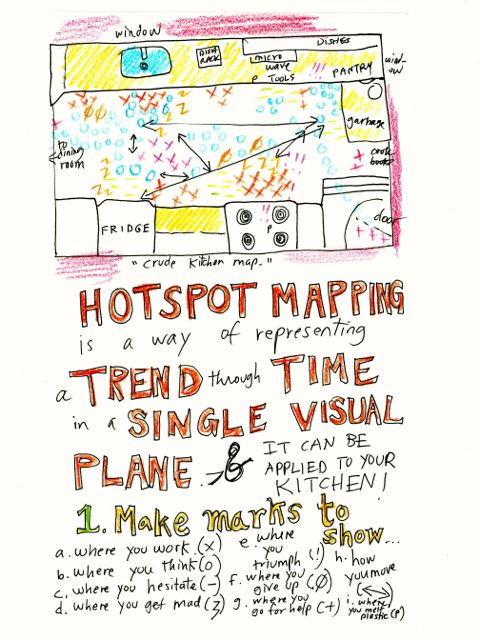 window
DISHES
DISH RACK
micro wave
P TOOLS !!!
PANTRY
wind-ow
garbage
to dining room
cook books
door
FRIDGE
P
"crude kitchen map."
HOTSPOT MAPPING
is a way of representing
a TREND through TIME
in a SINGLE VISUAL
PLANE. & IT CAN BE
APPLIED TO YOUR
KITCHEN!
1. Make marks to
show...
a. where you work (x)
b. where you think (o)
c. where you hesitate (-)
d. where you get mad (3)
e. where you triumph (!)
f. where you give up (Ø)
g. where you go for help (+)
h. how you move (↔)
i. where you melt plastic (p)